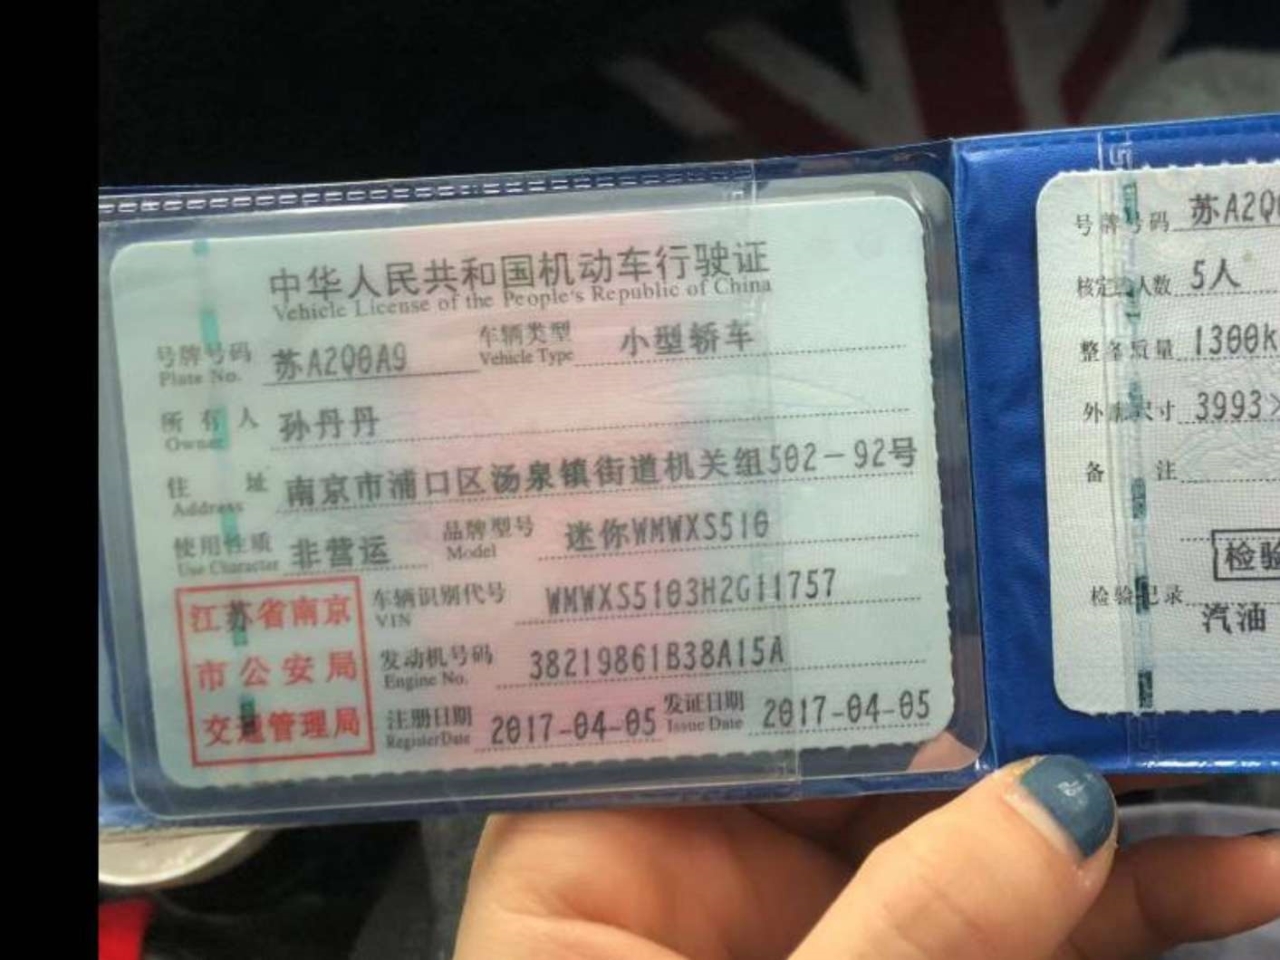 中华人民共和国机动车行驶证
Vehicle License of the People's Republic of China
号牌号码 苏A2Q0A9 车辆类型 小型轿车
Plate No. Vehicle Type
所有人 孙丹丹
Owner
住址 南京市浦口区汤泉镇街道机关组502-92号
Address
使用性质 非营运 品牌型号 迷你WMWXS510
Use Character Model
江苏省南京
市公安局
交通管理局
车辆识别代号 WMWXS5103H2G11757
VIN
发动机号码 38219861B38A15A
Engine No.
注册日期 2017-04-05 发证日期 2017-04-05
Register Date Issue Date
号牌号码 苏A2Q
核定 人数 5人
整备质量 1300k
外廓尺寸 3993×
备注
检验
检验记录
汽油